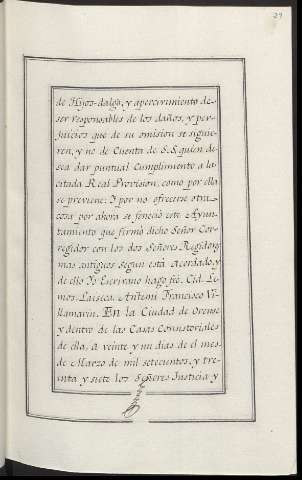 29
de Hijos-dalgo, y apercivimiento de
ser responsables de los daños, y per-
juicios que de su omision se siguie-
ren, y no de Cuenta de S.S. quien de-
sea dar puntual Cumplimiento a la
citada Real Provision, como por ella
se previene: I por no ofrecerse otra
cosa por ahora se feneció este Ayun-
tamiento que firmó dicho Señor Cor-
regidor con los dos Señores Regidores
mas antiguos segun está Acordado, y
de ello Io Escrivano hago feé. Cid. Le-
mos. Laiseca. Antemi Francisco Vi-
llamarin. En la Ciudad de Orense
y dentro de las Casas Consistoriales
de ella, a veinte y un dias de el mes
de Marzo de mil setecientos, y tre-
inta y siete los Señores Justicia y